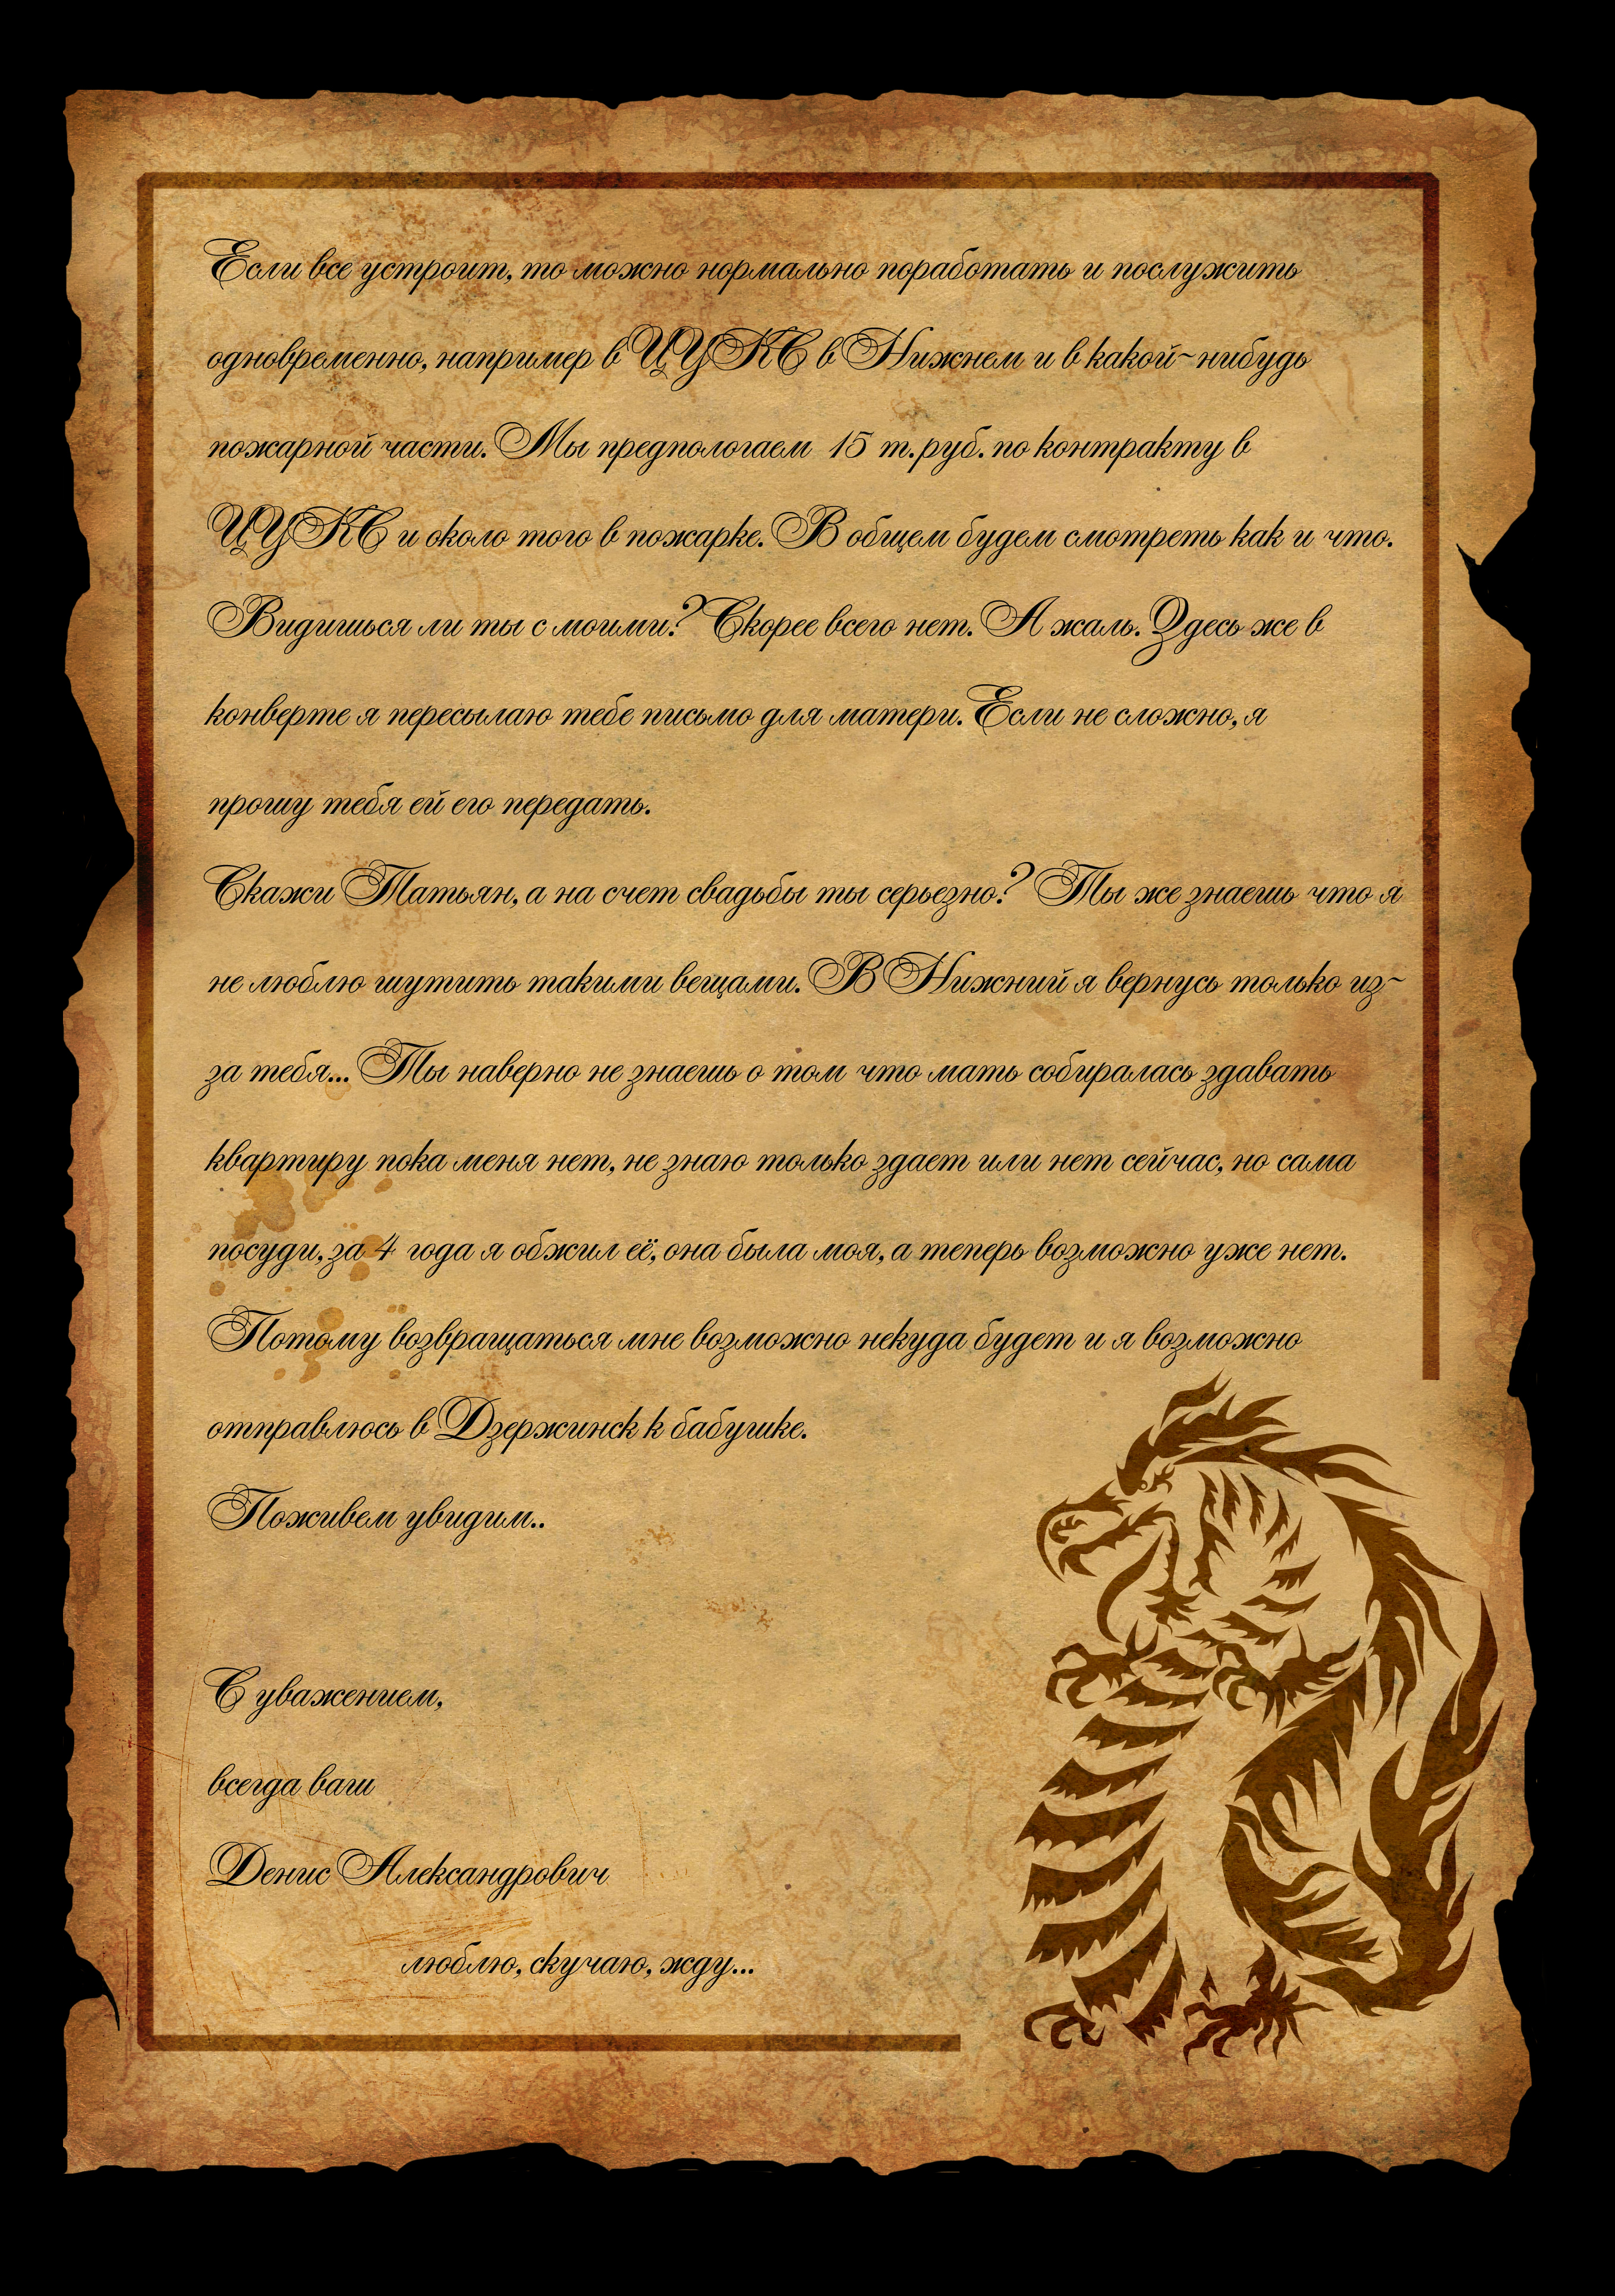 Если все устроит, то можно нормально поработать и послужить
одновременно, например в ЦУКС в Нижнем и в какой-нибудь
пожарной части. Мы предпологаем 15 т.руб. по контракту в
ЦУКС и около того в пожарке. В общем будем смотреть как и что.
Видишься ли ты с моими? Скорее всего нет. А жаль. Здесь же в
конверте я пересылаю тебе письмо для матери. Если не сложно, я
прошу тебя ей его передать.
Скажи Татьян, а на счет свадьбы ты серьезно? Ты же знаешь что я
не люблю шутить такими вещами. В Нижний я вернусь только из-
за тебя... Ты наверно не знаешь о том что мать собиралась здавать
квартиру пока меня нет, не знаю только здает или нет сейчас, но сама
посуди, за 4 года я обжил её, она была моя, а теперь возможно уже нет.
Потому возвращаться мне возможно некуда будет и я возможно
отправлюсь в Дзержинск к бабушке.
Поживем увидим..
С уважением,
всегда ваш
Денис Александрович
люблю, скучаю, жду...